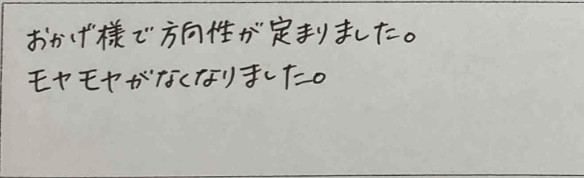 おかげ様で方向性が定まりました。
モヤモヤがなくなりました。